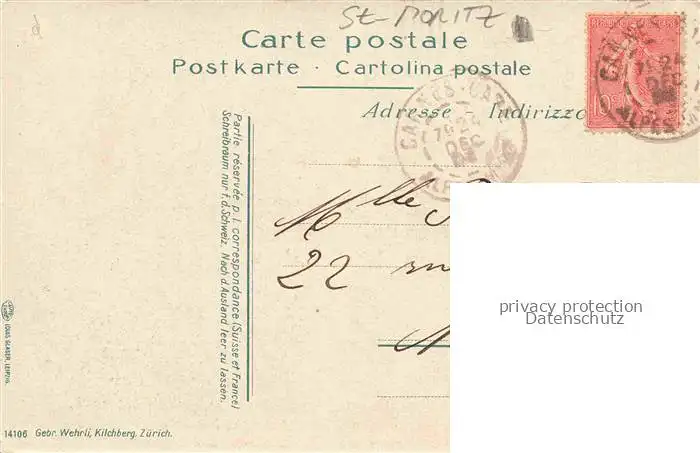 St-MORITZ
Carte postale
Postkarte · Cartolina postale
Adresse - Indirizzo
CANNES
DEC
Partie réservée p. l. correspondance (Suisse et France)
Schreibraum nur f. d. Schweiz. Nach d. Ausland leer zu lassen.
Mlle
22
privacy protection
Datenschutz
LOUIS GLASER, LEIPZIG.
14106 Gebr. Wehrli, Kilchberg. Zürich.